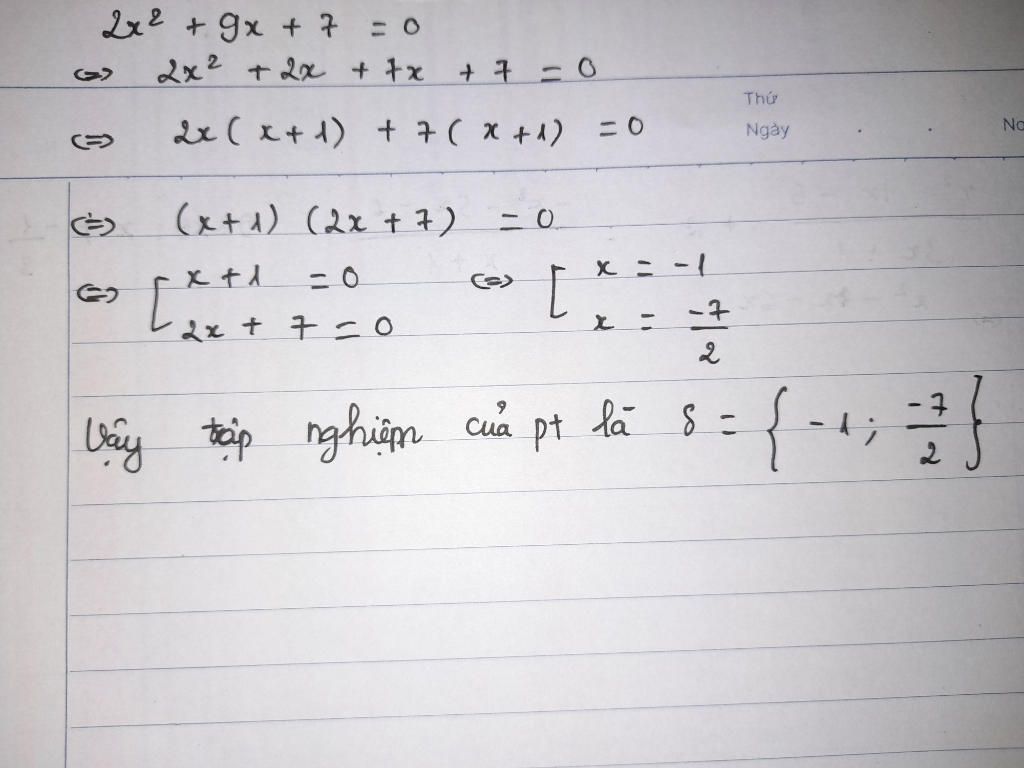 2x² + 9x + 7 = 0
<=> 2x² + 2x + 7x + 7 = 0
Thứ
<=> 2x(x+1) + 7(x+1) = 0
Ngày . . No
<=> (x+1) (2x+7) = 0
<=> [ x+1 = 0 <=> [ x = -1
2x + 7 = 0 x = -7/2
Vậy tập nghiệm của pt là S = { -1; -7/2 }